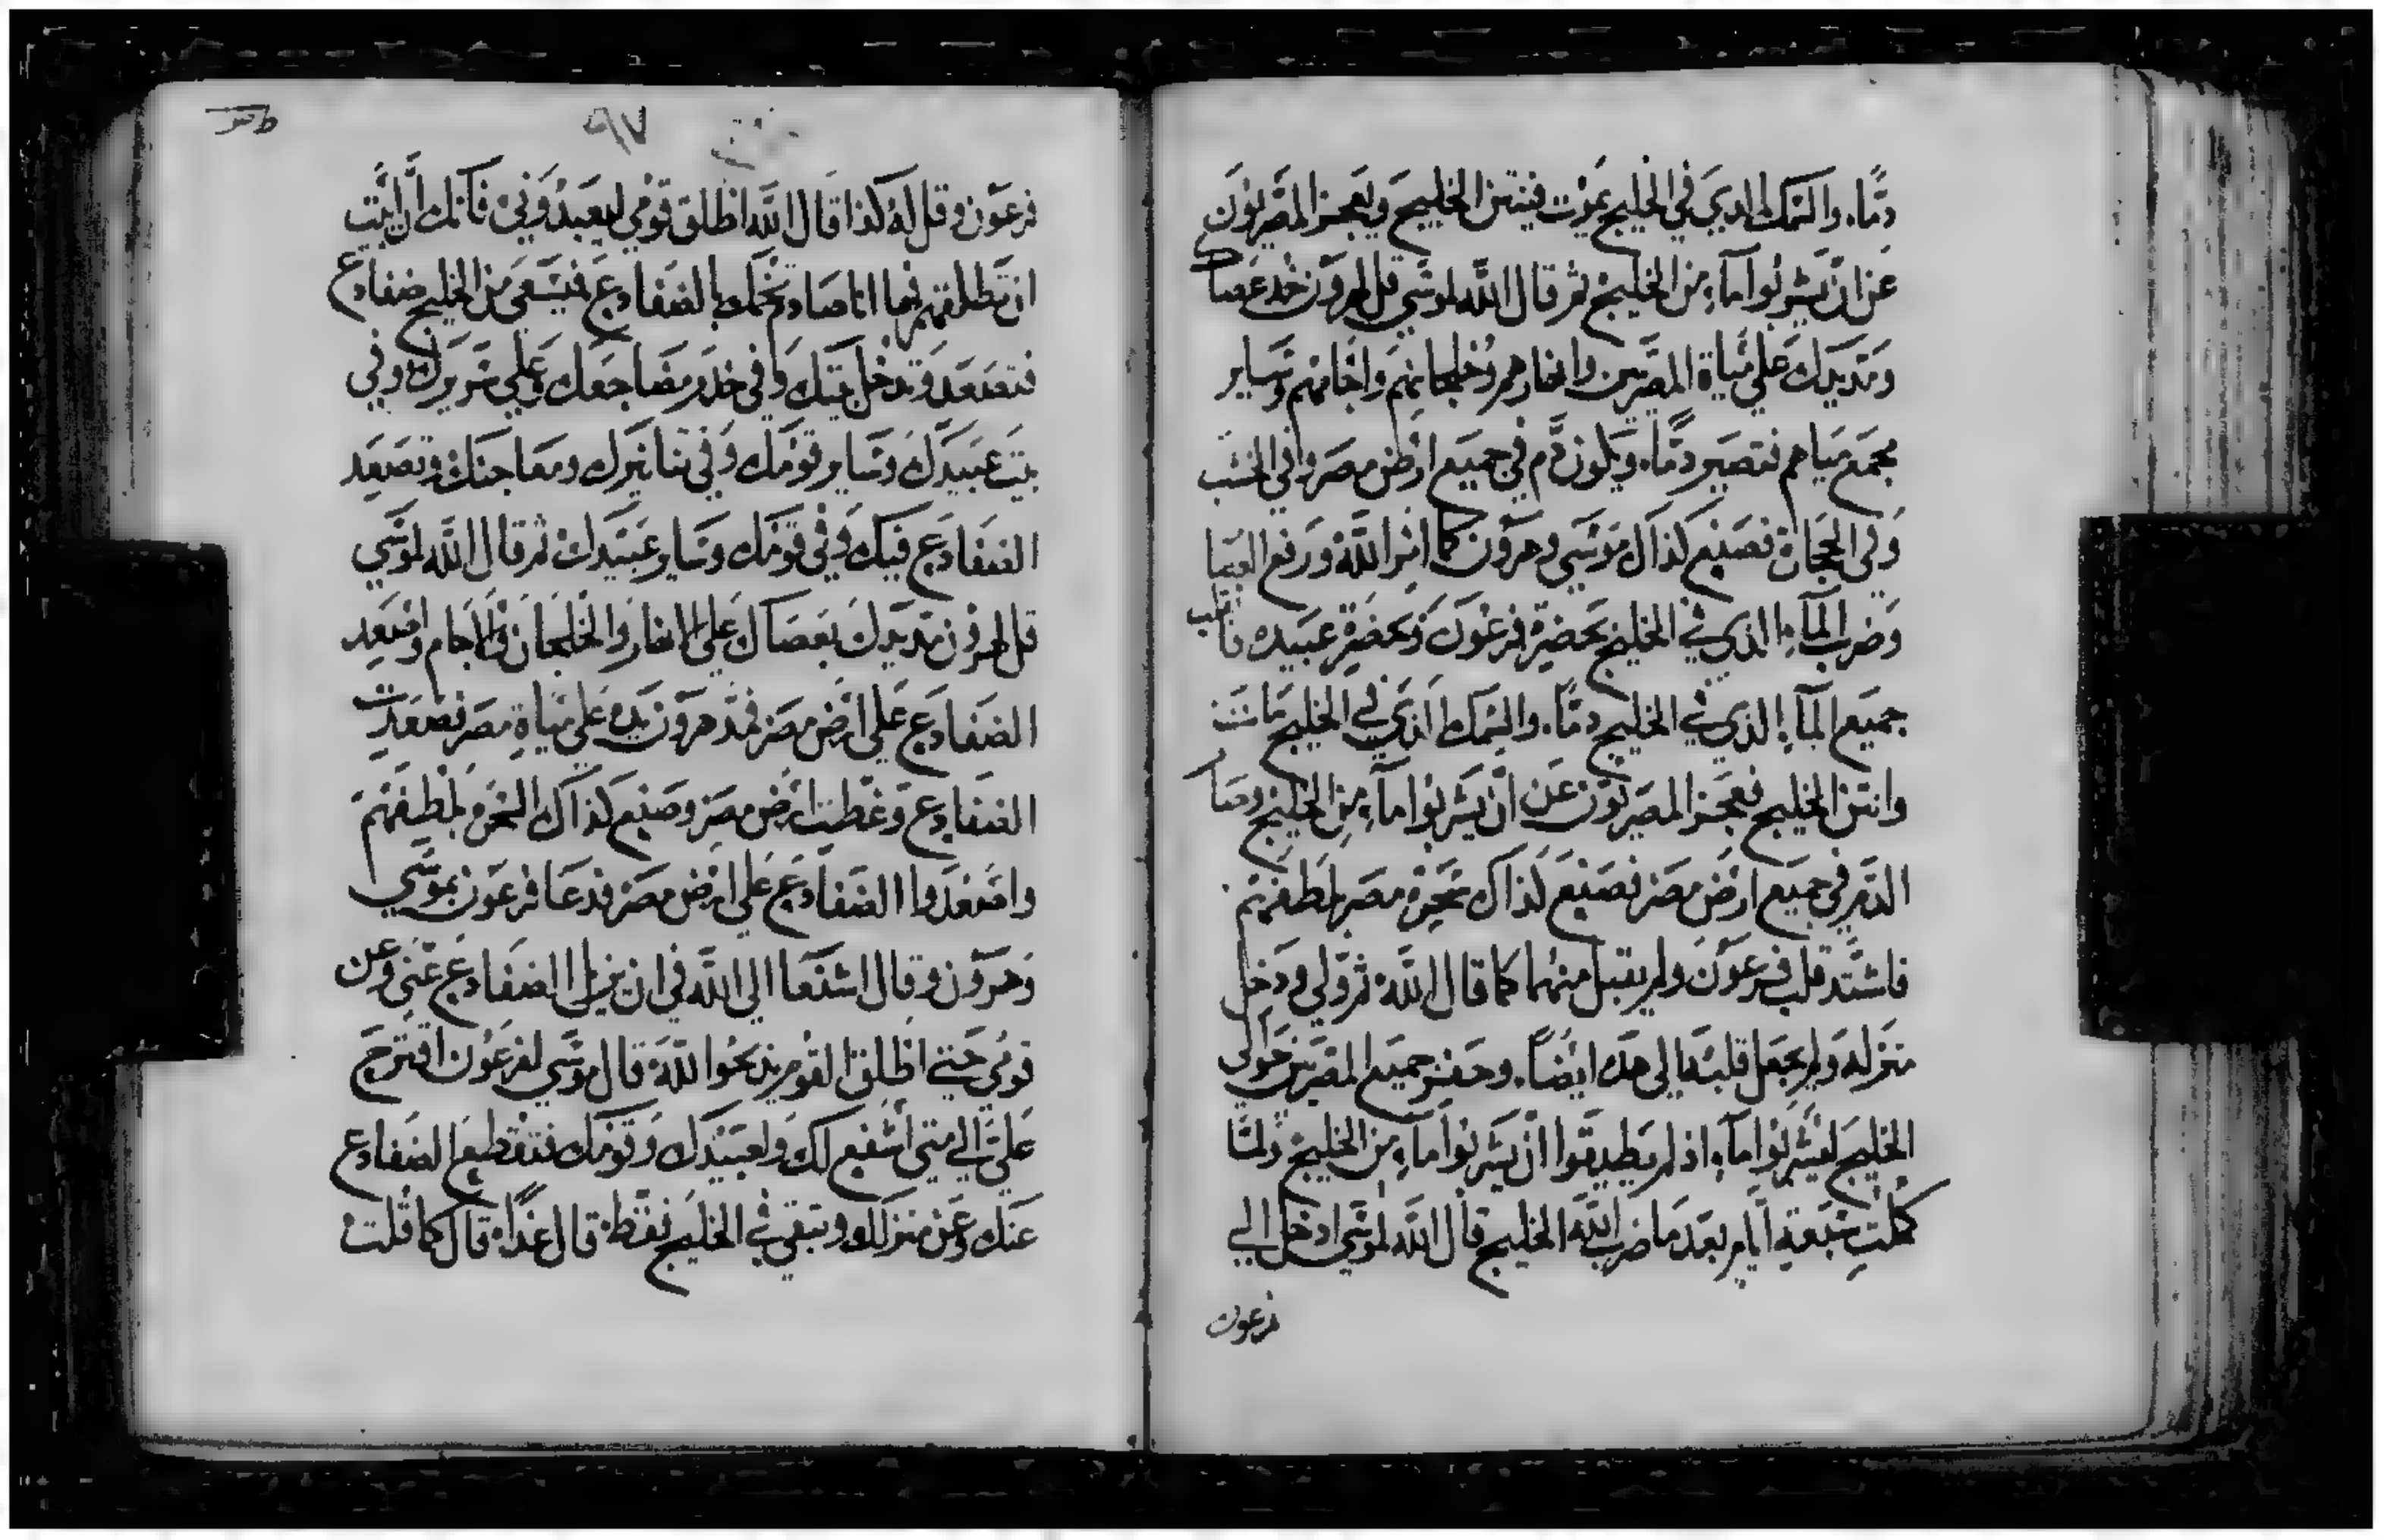 دمًّا. والسَّمَك الدي في الخليج يموت فينتن الخليج ويعجز المصريون
عن ان يشربوا مآء من الخليج ثم قال اللَّه لموسي قل لهرون خد عصاك
ومد يدك علي مياة المصريين وانهارهم وخلجانهم واجامهم وساير
مجمع مياهم فتصير دمًّا. ويكون دم في جميع ارض مصر وفي الخشب
وفي الحجاة فصنع كذاك موسي وهرون كما امر اللَّه ورفع العصا
وضرب المآء الذي في الخليج بحضرة فرعون وبحضرة عبيده فانقلب
جميع المآء الذي في الخليج دمًّا. والسمك الذي في الخليج ماتت
وانتن الخليج فعجز المصريون عن ان يشربوا مآء من الخليج وصار
الدم في جميع ارض مصر فصنع كذاك سحرة مصر بلطفهم
فاشتد قلب فرعون ولم يقبل منهما كما قال اللَّه ثم ولي ودخل
منزله ولم يجعل قلبه الي هده ايضًا. وحفر جميع المصريين حوالي
الخليج ليشربوا مآء اذ لم يطيقوا ان يشربوا مآء من الخليج ولمَّا
كملت سبعة ايام بعد ما ضرب اللَّه الخليج قال اللَّه لموسي ادخل الي
فرعون
٩٧
فرعون وقل له كذا قال اللَّه اطلق قومي ليعبدوني فانك ان ابيت
ان تطلقهم فها انا صادم تخمك بالضفادع فيسعي من الخليج ضفادع
فتصعد وتدخل بيتك وفي خدر مضاجعك وعلي سريرك وفي
بيت عبيدك وساير قومك وفي تنانيرك ومعاجنك وتصعد
الضفادع فيك وفي قومك وساير عبيدك ثم قال اللَّه لموسي
قل لهرون مد يدك بعصاك علي الانهار والخلجان والاجام واصعد
الضفادع علي ارض مصر فمد هرون يده علي مياة مصر فصعدت
الضفادع وغطت ارض مصر وصنع كذاك السحرة بلطفهم
واصعدوا الضفادع علي ارض مصر فدعا فرعون بموسي
وهرون وقال اشفعا الي اللَّه في ان يزيل الضفادع عني وعن
قومي حتي اطلق القوم يذبحوا للَّه قال موسي لفرعون اقترح
علي الي متي اشفع لك ولعبيدك وقومك فتنقطع الضفادع
عنك وعن منزلك وتبقي في الخليج فقط قال غداه قال كما قلت